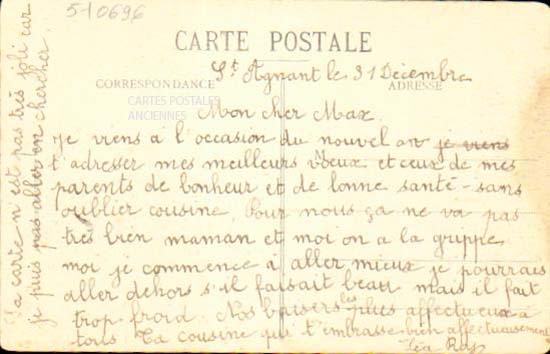 5-10696
CARTE POSTALE
St Agnant le 31 Décembre
CORRESPONDANCE
ADRESSE
CARTES POSTALES
ANCIENNES
Mon cher Max.
Je viens à l'occasion du nouvel an je viens
t'adresser mes meilleurs Voeux et ceux de mes
parents de bonheur et de bonne santé - sans
oublier cousine. Pour nous ça ne va pas
très bien maman et moi on a la grippe
moi je commence à aller mieux je pourrais
aller dehors s'il faisait beau mais il fait
trop froid. Nos baisers les plus affectueux à
tous. Ta cousine qui t'embrasse bien affectueusement
Léa
La carte n'est pas très joli car
je puis pas aller en chercher.